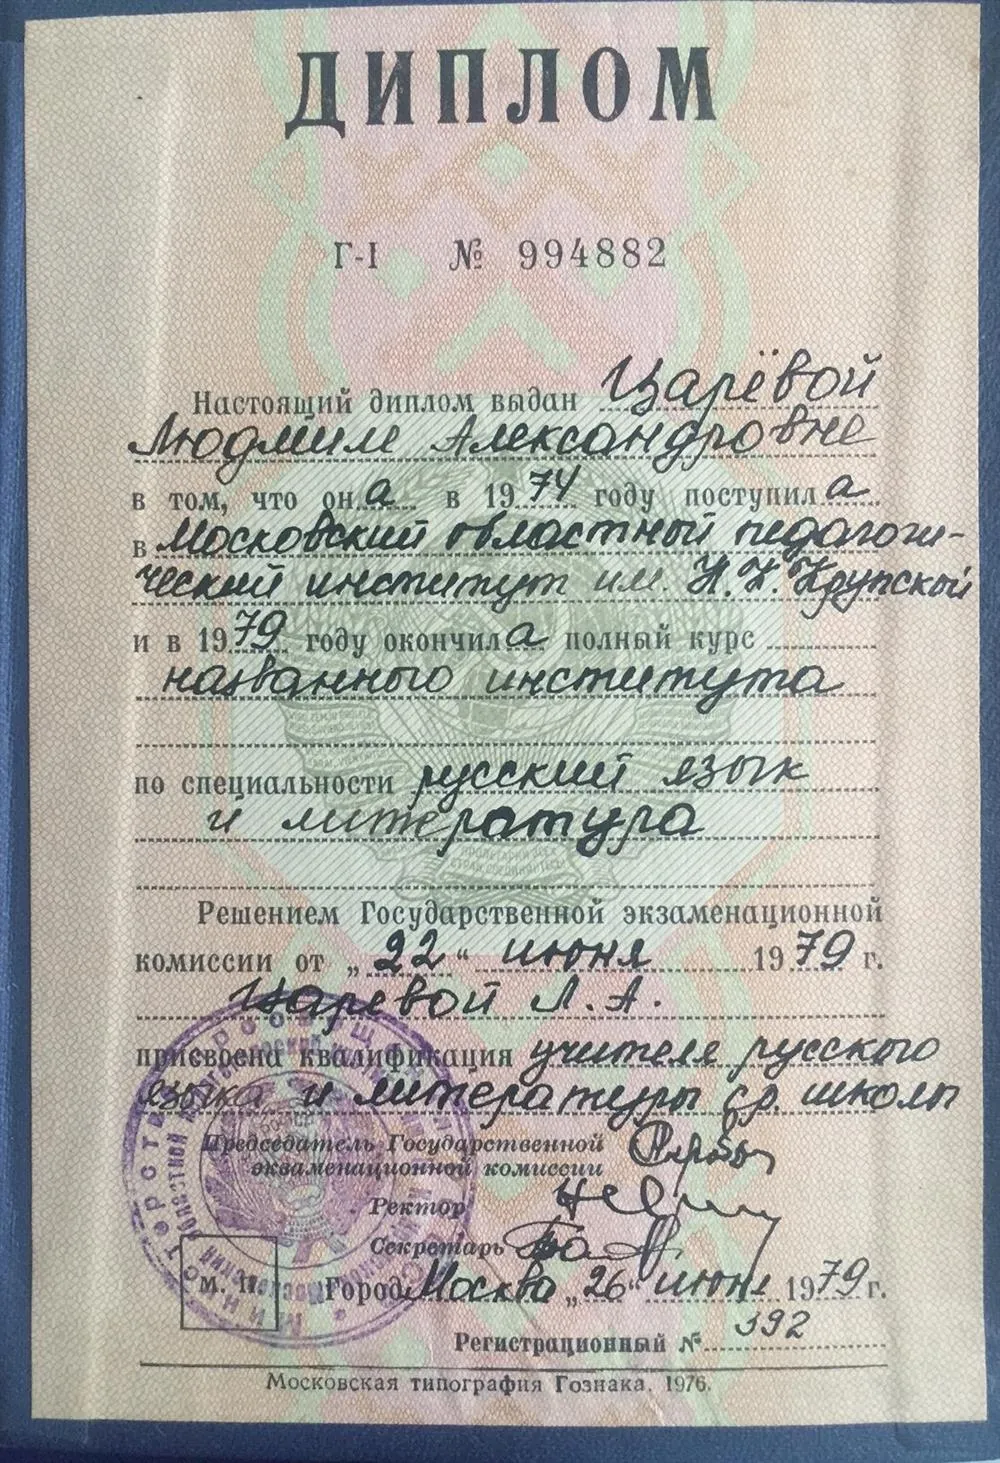 ДИПЛОМ
Г-I № 994882
Настоящий диплом выдан Царёвой
Людмиле Александровне
в том, что она в 1974 году поступила
в Московский областной педагоги-
ческий институт им. Н.К. Крупской
и в 1979 году окончила полный курс
названного института
по специальности русский язык
и литература
Решением Государственной экзаменационной
комиссии от „22“ июня 1979 г.
Царевой Л.А.
присвоена квалификация учителя русского
языка и литературы ср. школы
Председатель Государственной
экзаменационной комиссии
Ректор
Секретарь
М. П.
Город Москва „26“ июня 1979 г.
Регистрационный № 392
Московская типография Гознака. 1976.